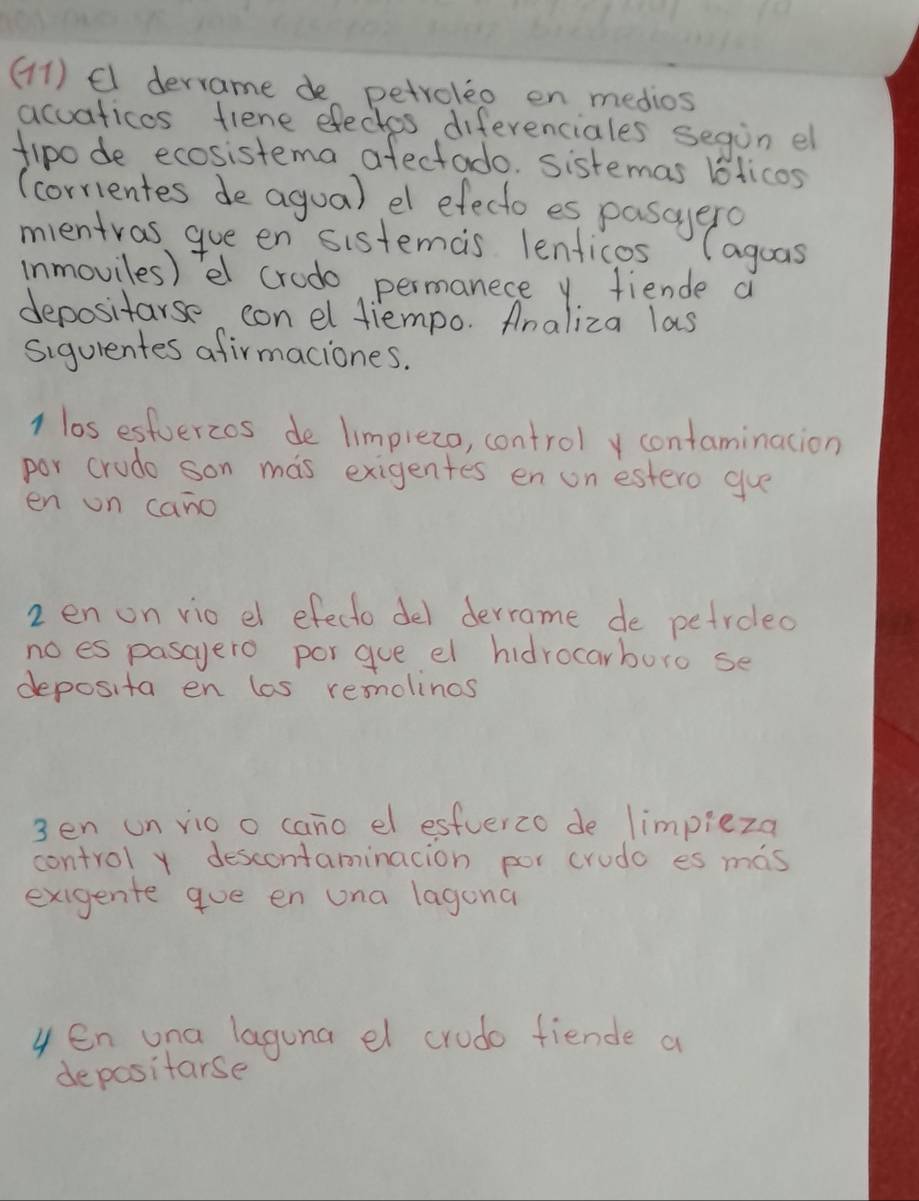 (11) El derrame de petroléo en medios
acuaticos tiene efectos diferenciales según el
tipo de ecosistema afectado. Sistemas lóticos
(corrientes de agua) el efecto es pasajero
mientras que en sistemas lenticos (aguas
inmoviles) el crudo permanece y tiende a
depositarse con el tiempo. Analiza las
siguientes afirmaciones.
1 los esfuerzos de limpieza, control y contaminacion
por crudo son más exigentes en un estero que
en un caño
2 en un rio el efecto del derrame de petroleo
no es pasajero por que el hidrocarburo se
deposita en los remolinos
3 en un rio o caño el esfuerzo de limpieza
control y descontaminación por crudo es más
exigente que en una laguna
4 En una laguna el crudo tiende a
depositarse